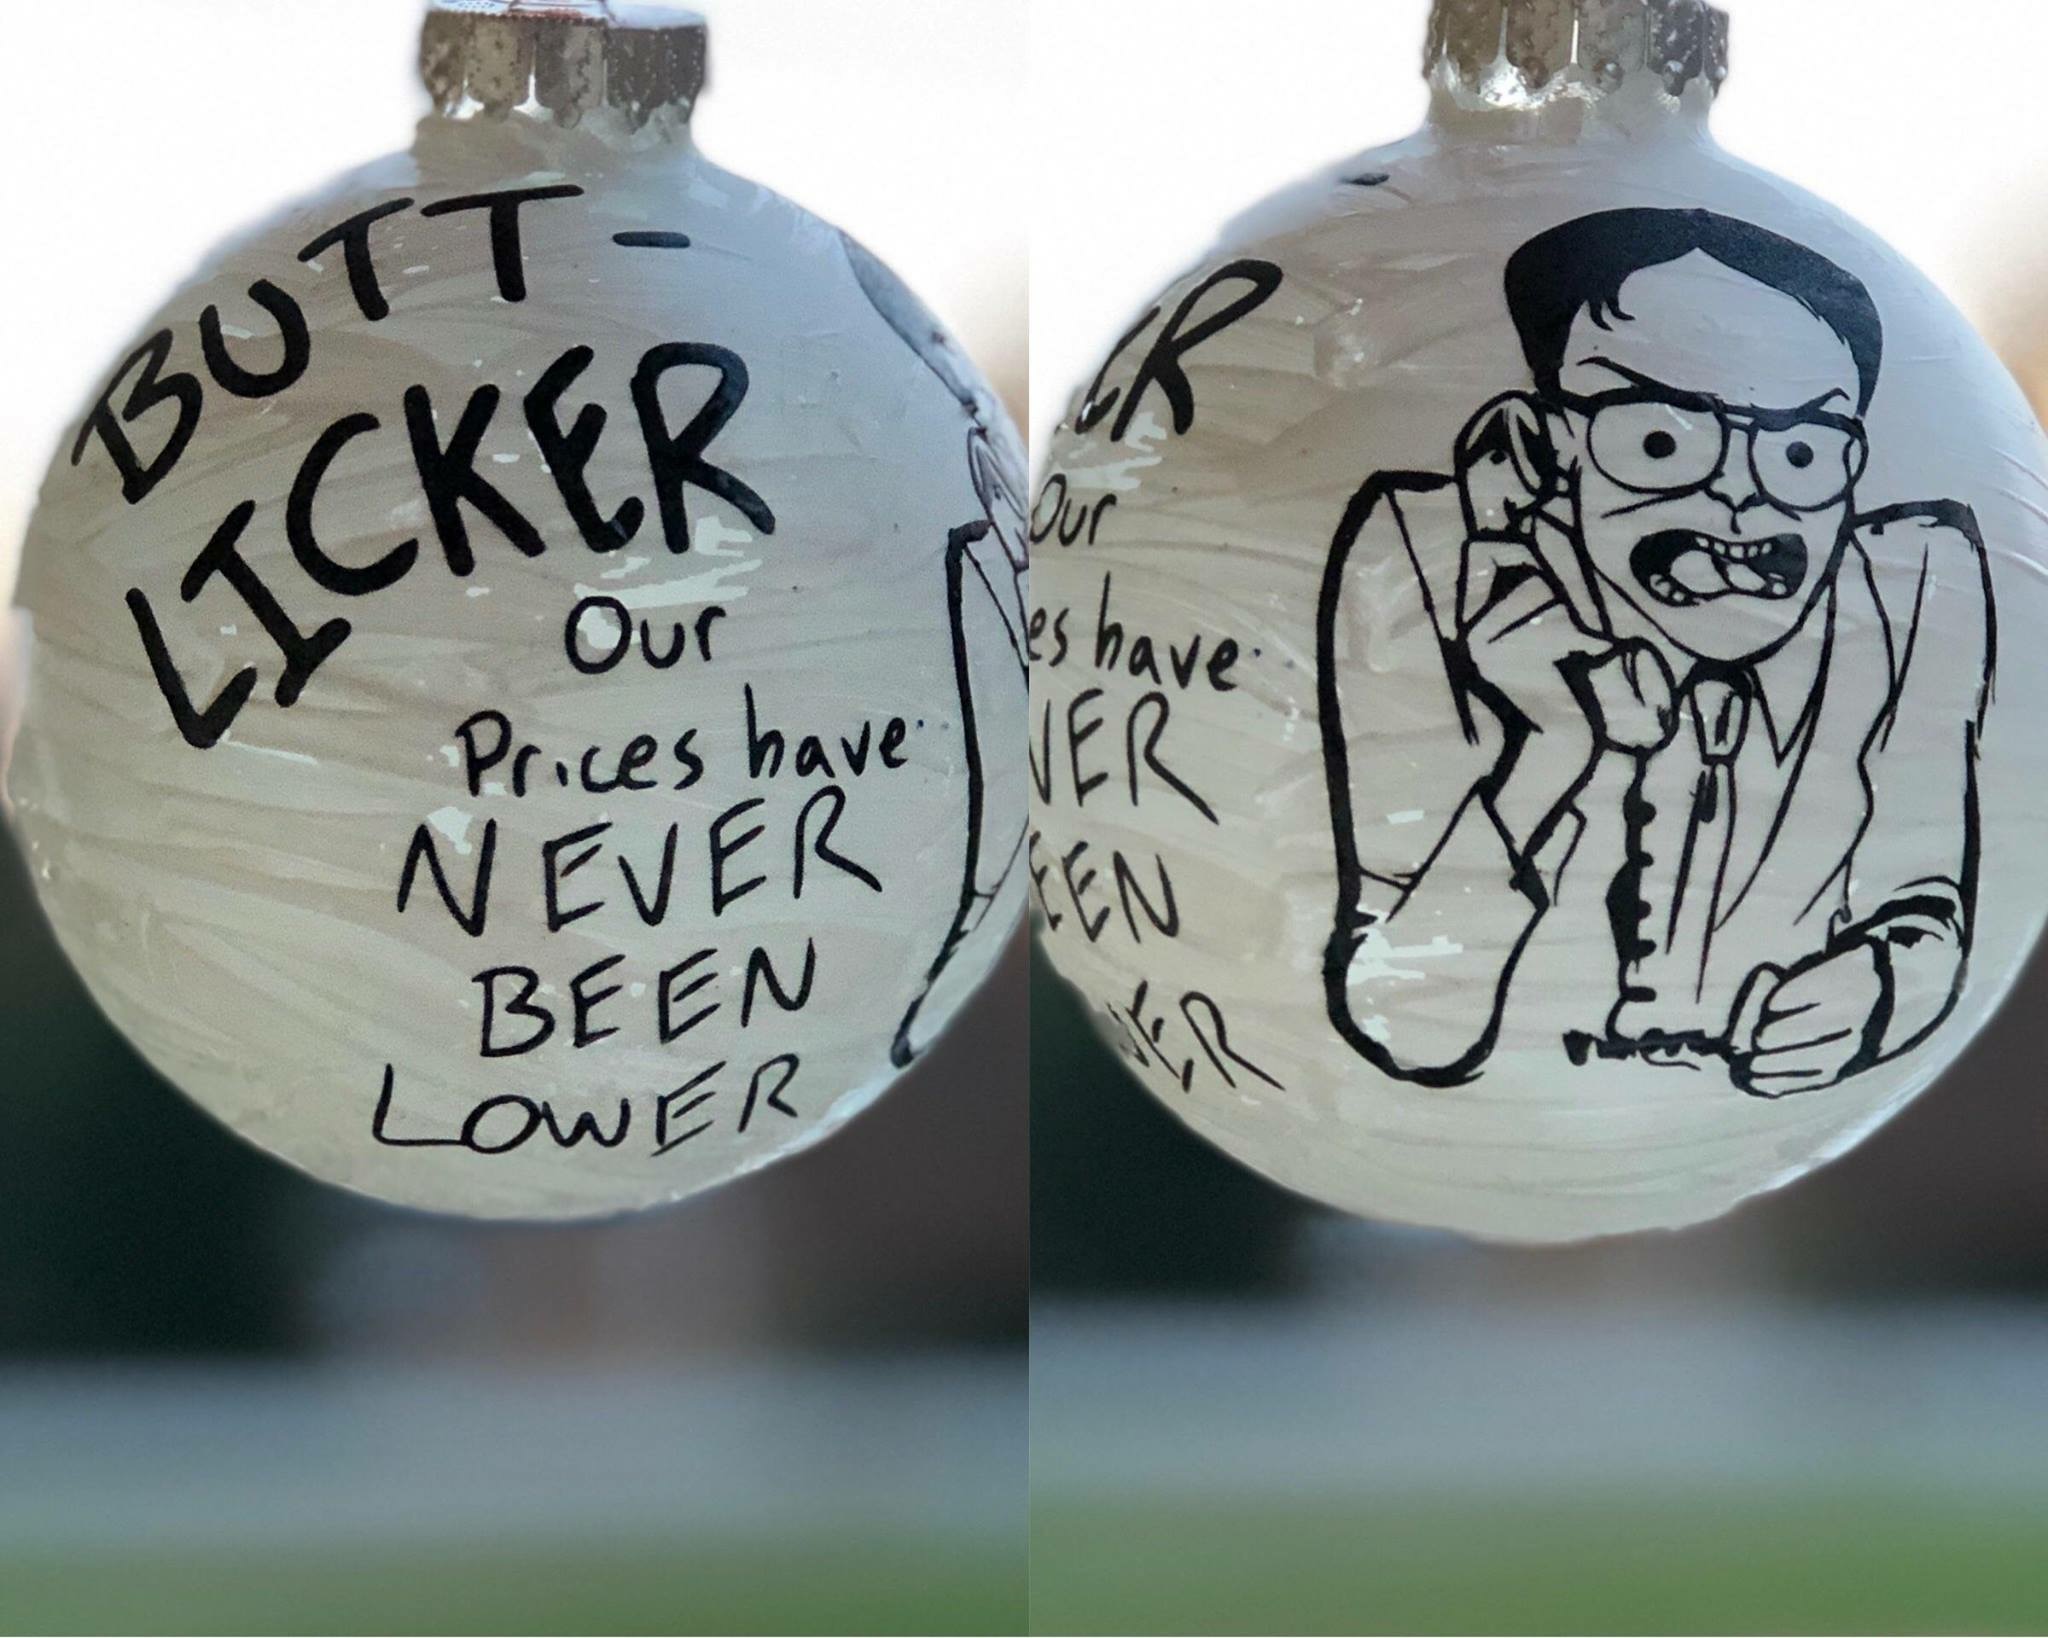 BUTT-
LICKER
Our
Prices have
NEVER
BEEN
LOWER
ER
Our
es have
VER
EEN
WER